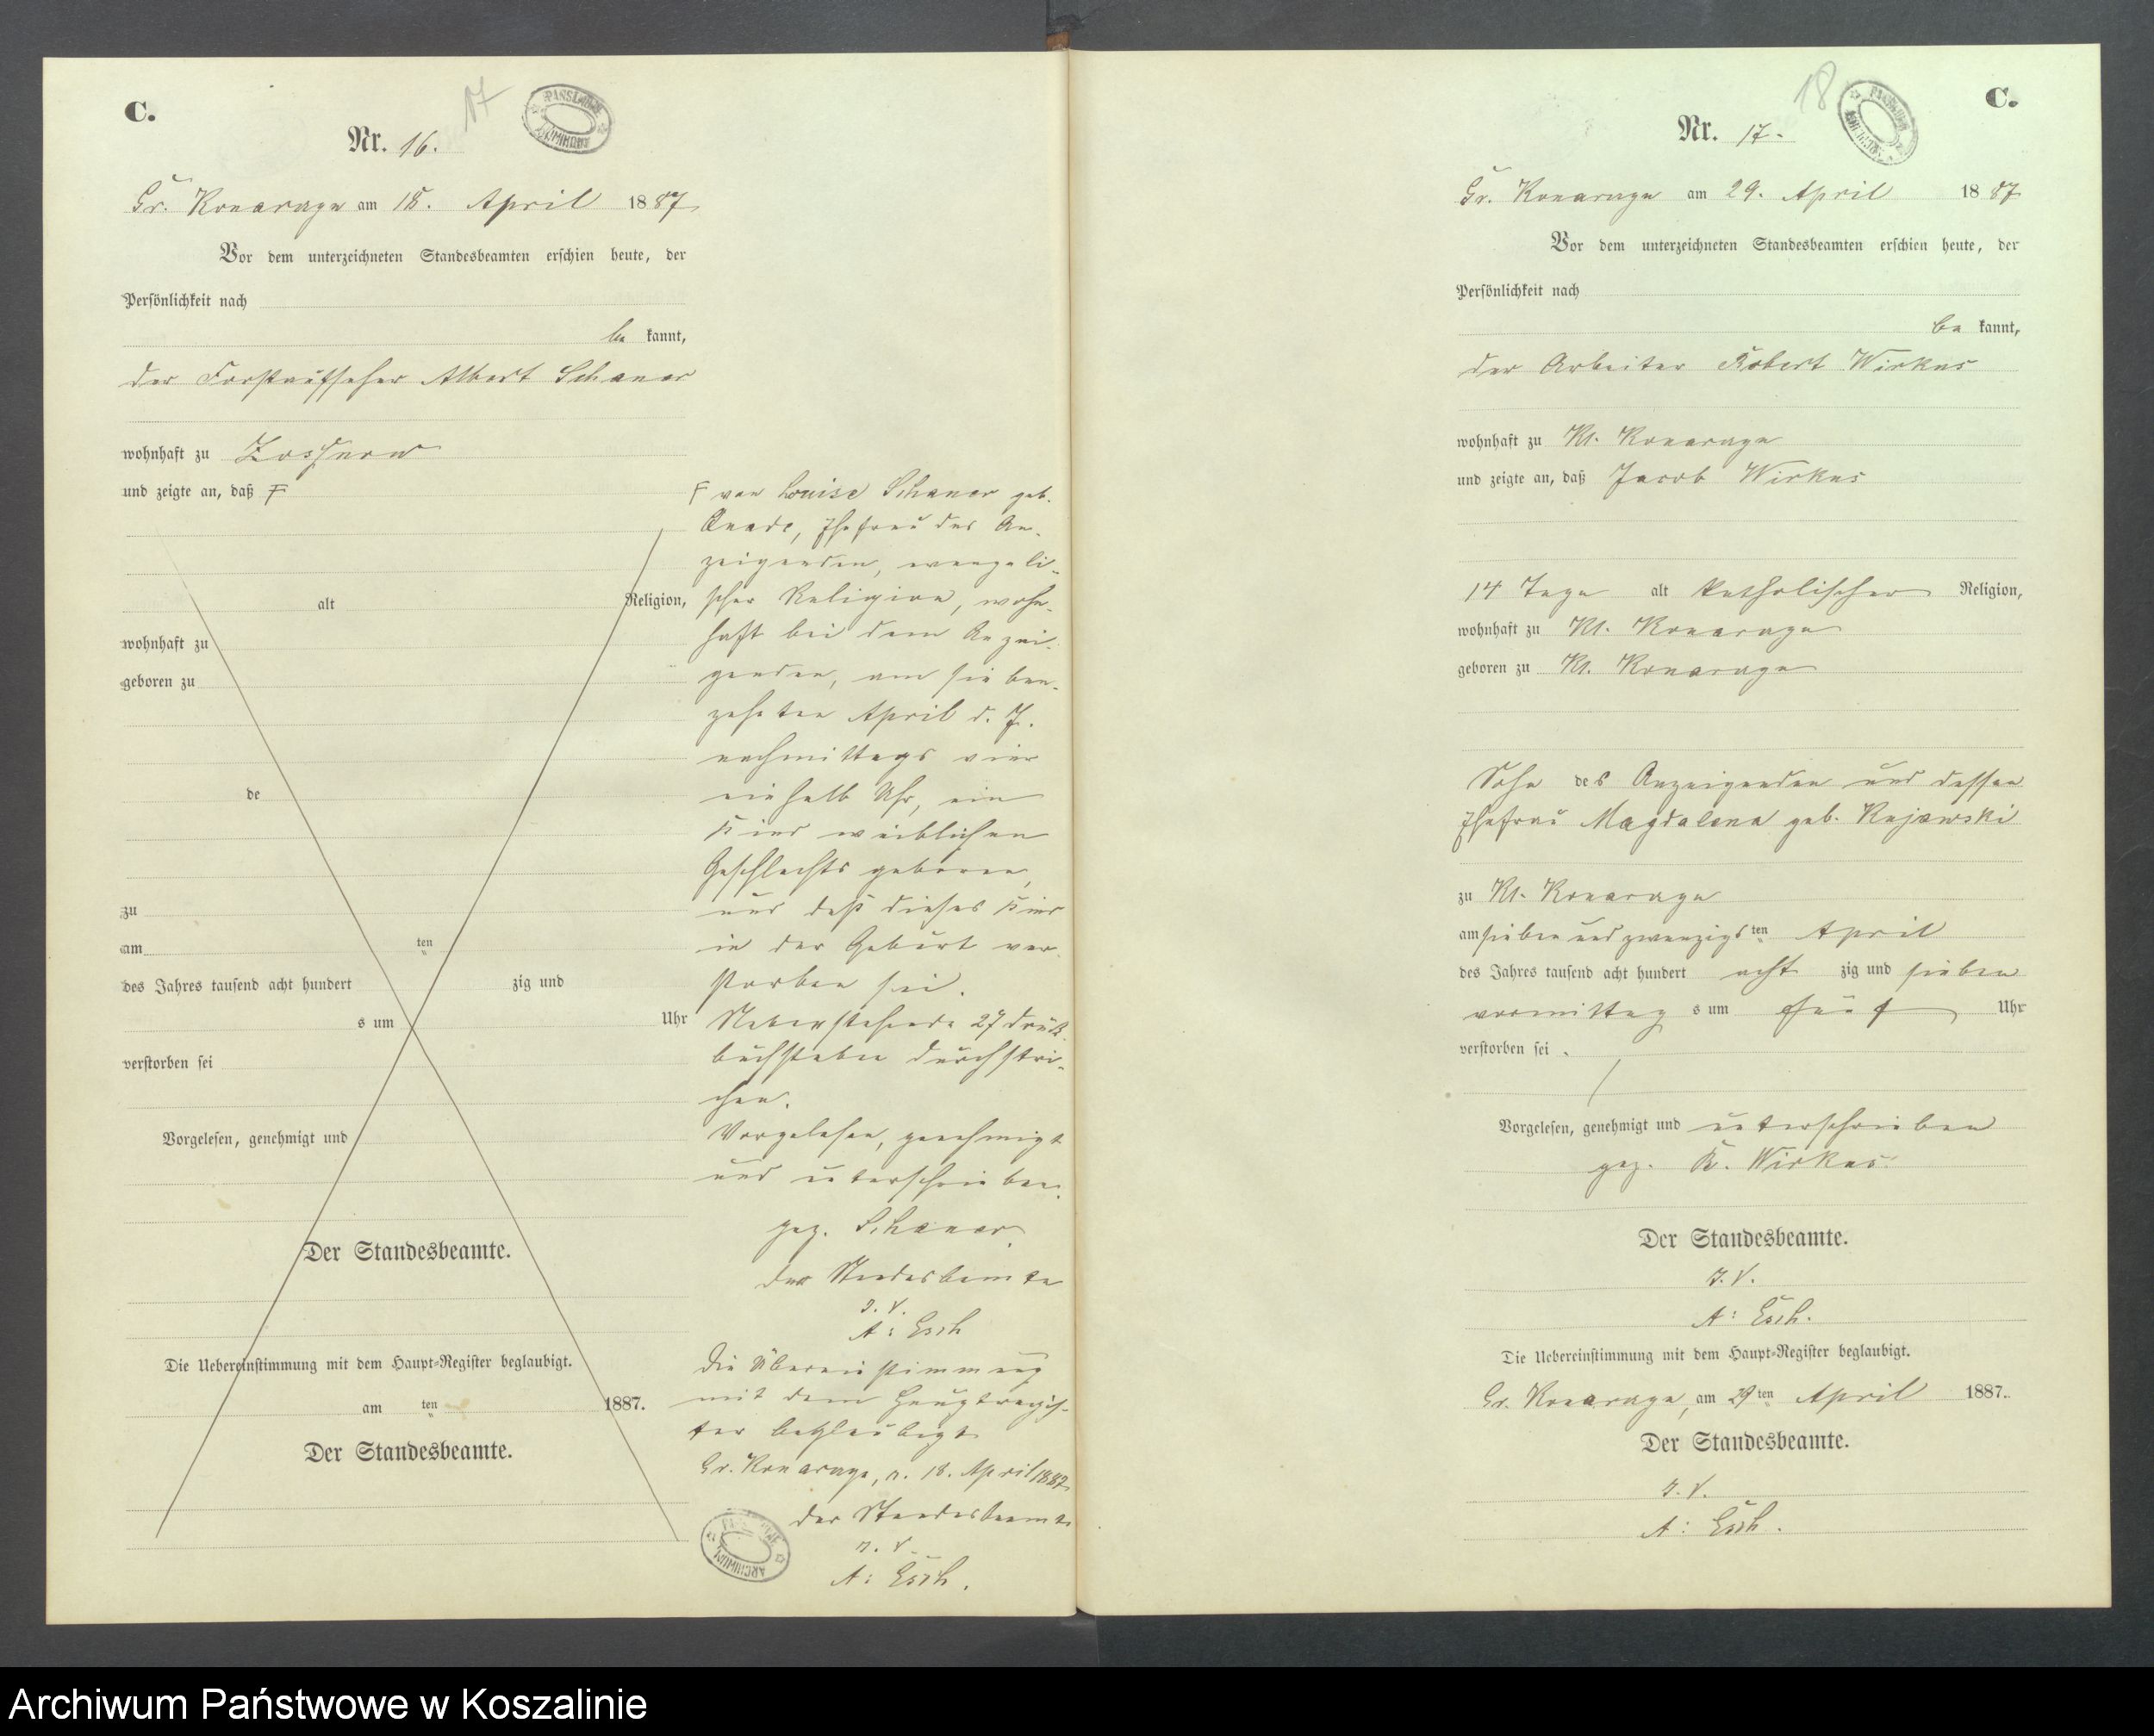 C.
17
Nr. 16.
Gr. Konarzyn am 18. April 1887
Vor dem unterzeichneten Standesbeamten erschien heute, der
Persönlichkeit nach
be kannt,
der Forstaufseher Albert Schanor
wohnhaft zu
und zeigte an, daß F
alt Religion,
wohnhaft zu
geboren zu
de
zu
am ten
des Jahres tausend acht hundert zig und
s um Uhr
verstorben sei
Vorgelesen, genehmigt und
Der Standesbeamte.
Die Uebereinstimmung mit dem Haupt-Register beglaubigt.
am ten 1887.
Der Standesbeamte.
F von Louise Schanor geb.
Quade, Ehefrau des An-
zeigenden, evangeli-
scher Religion, wohn-
haft bei dem Anzei-
genden, am sieben-
zehnten April d. J.
nachmittags vier
einhalb Uhr, ein
Kind weiblichen
Geschlechts geboren,
und daß dieses Kind
in der Geburt ver-
storben sei.
Nebenstehende 27 Druck-
buchstaben durchstri-
chen.
Vorgelesen, genehmigt
und unterschrieben.
gez. Schanor
Der Standesbeamte
I. V.
A: Esch
Die Übereinstimmung
mit dem Hauptregis-
ter beglaubigt
Gr. Konarzyn, d. 18. April 1887
Der Standesbeamte
I. V.
A: Esch.
ARCHIWUM
C.
18
Nr. 17.
Gr. Konarzyn am 29. April 1887
Vor dem unterzeichneten Standesbeamten erschien heute, der
Persönlichkeit nach
be kannt,
der Arbeiter Robert Wirkus
wohnhaft zu Kl. Konarzyn
und zeigte an, daß Jacob Wirkus
14 Tage alt katholischer Religion,
wohnhaft zu Kl. Konarzyn
geboren zu Kl. Konarzyn
Sohn des Anzeigenden und dessen
Ehefrau Magdalena geb. Kujawski
zu Kl. Konarzyn
am sieben und zwanzigsten April
des Jahres tausend acht hundert acht zig und sieben
vormittag s um fünf Uhr
verstorben sei.
Vorgelesen, genehmigt und unterschrieben
gez. R. Wirkus.
Der Standesbeamte.
I. V.
A: Esch.
Die Uebereinstimmung mit dem Haupt-Register beglaubigt.
Gr. Konarzyn, am 29ten April 1887.
Der Standesbeamte.
I. V.
A: Esch.
Archiwum Państwowe w Koszalinie